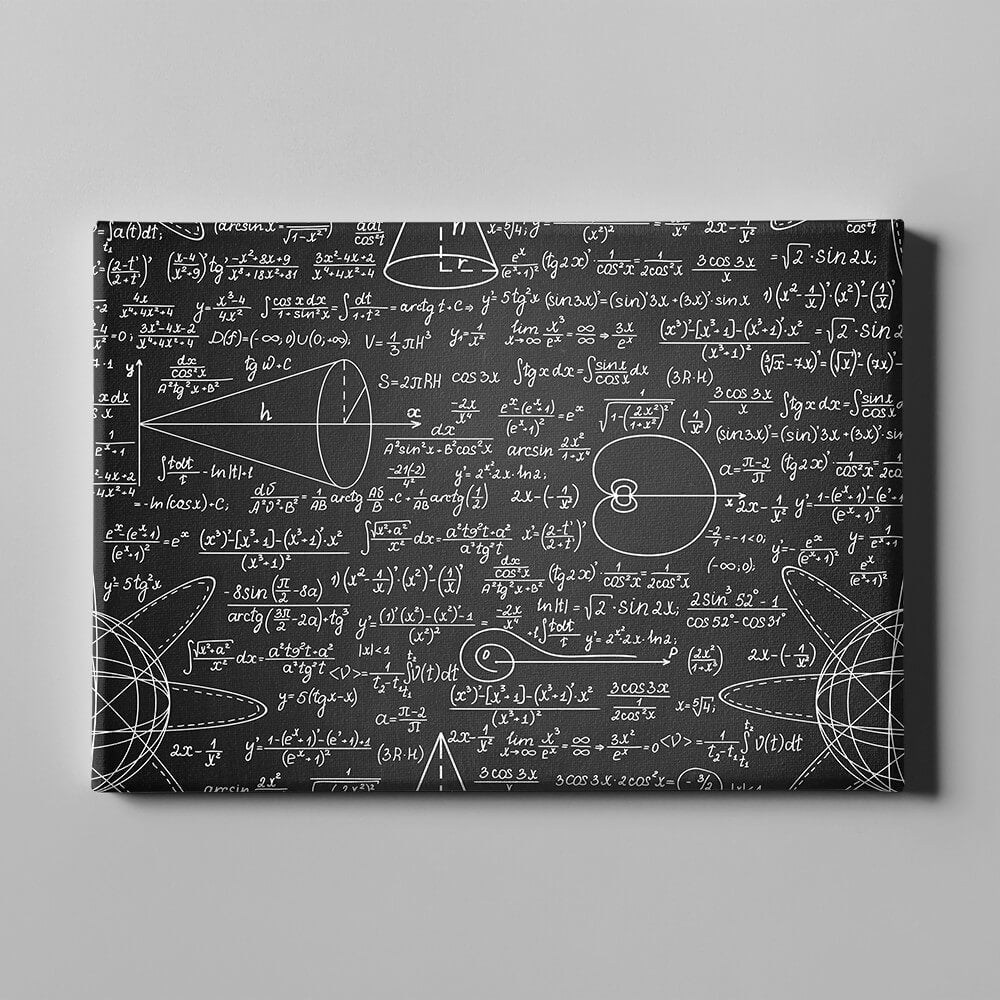 ∫a(t)dt;
x=⁵√4; y
h
r
(2-t'/2+t')' (x-4/x²+9)' -x²-8x+9/x³+18x²+81 3x²-4x+2/x⁴+4x²-4 eˣ/(eˣ+1)² (tg2x)' 1/cos²x=1/2cos²x 3cos3x/x =√2·sin2x;
4x/x⁴+4x²+4 y=x³-4/4x² ∫cosxdx/1+sin²x=∫dt/1+t²=arctgt+C⇒ y'=5tg²x (sin3x)'=(sin)'3x+(3x)'·sinx 1)(x²-1/x)'·(x²)'-(1/x)'
=0; 3x²-4x-2/x⁴+4x²+4 D(f)=(-∞;0)∪(0;+∞), V=1/3πH³ y₁=1/x² lim x→∞ x³/eˣ=∞/∞⇒3x/eˣ (x³)'-[x³+1]-(x³+1)'·x²/(x³+1)² =√2·sin2
(∛x-7x)'=(√x)'-(7x)'
y
dx/cos²x/A²tg²x+B² tgω+C S=2πRH cos3x ∫tgxdx=∫sinx/cosxdx (3R·H)
h
x
-2x/x⁴ eˣ-(eˣ+1)/(eˣ+1)²=eˣ 1/√1-(2x²/1+x²)² (1/x²) 3cos3x/x ∫tgxdx=∫sinx/cosx
dx/A²sin²x+B²cos²x arcsin 2x²/1+x⁴ (sin3x)'=(sin)'3x+(3x)'·sin
∫tdt/t-ln|t|+1 -21(-2)/4² y'=2ˣ²·2x·ln2; a=π-2/π (tg2x)' 1/cos²x=1/2cos
=-ln(cosx)+C; dυ/A²υ²·B²=1/AB arctg Aυ/B+C+1/AB arctg(1/2) 2x-(-1/x²) x 2x-1/x² y'=1-(eˣ+1)'-(eˣ+1/(eˣ+1)²
eˣ-(eˣ+1)/(eˣ+1)²=eˣ (x³)'-[x³+1]-(x³+1)'·x²/(x³+1)² ∫√x²+a²/x² dx=a²tg²t+a²/a³tg²t x'=(2-t'/2+t')' -2/1=-1<0; y'=-eˣ/(eˣ+1)² y=1/eˣ+1
y'=5tg²x 1)(x²-1/x)'·(x²)'-(1/x)' dx/cos²x/A²tg²x+B² (tg2x)' 1/cos²x=1/2cos²x (-∞;0); eˣ/(eˣ+1)²
-8sin(π/2-8a)/arctg(3π/2-2a)+tg³ y'=(1)'(x²)-(x²)'·1/(x²)²= -2x/x⁴ ln|t|=√2·sin2x; 2sin³52°-1/cos52°-cos31°
+1∫tdt/t y'=2ˣ²·2x·ln2;
∫√x²+a²/x² dx=a²tg²t+a²/a³tg²t |x|<1 <V>=1/t₂-t₁∫V(t)dt O P (2x²/1+x³) 2x-(-1/x²)
y=5(tgx-x) (x³)'-[x³+1]-(x³+1)'·x²/(x³+1)² 3cos3x/1/2cos²x x=⁵√4;
a=π-2/π
2x-1/x² y'=1-(eˣ+1)'-(eˣ+1)+1/(eˣ+1)² (3R·H) 2x-1/x² lim x→∞ x³/eˣ=∞/∞⇒3x²/eˣ=0 <V>=1/t₂-t₁∫V(t)dt
arcsin 2x² 3cos3x 3cos3x·2cos²x=(-3/2) |x|<1